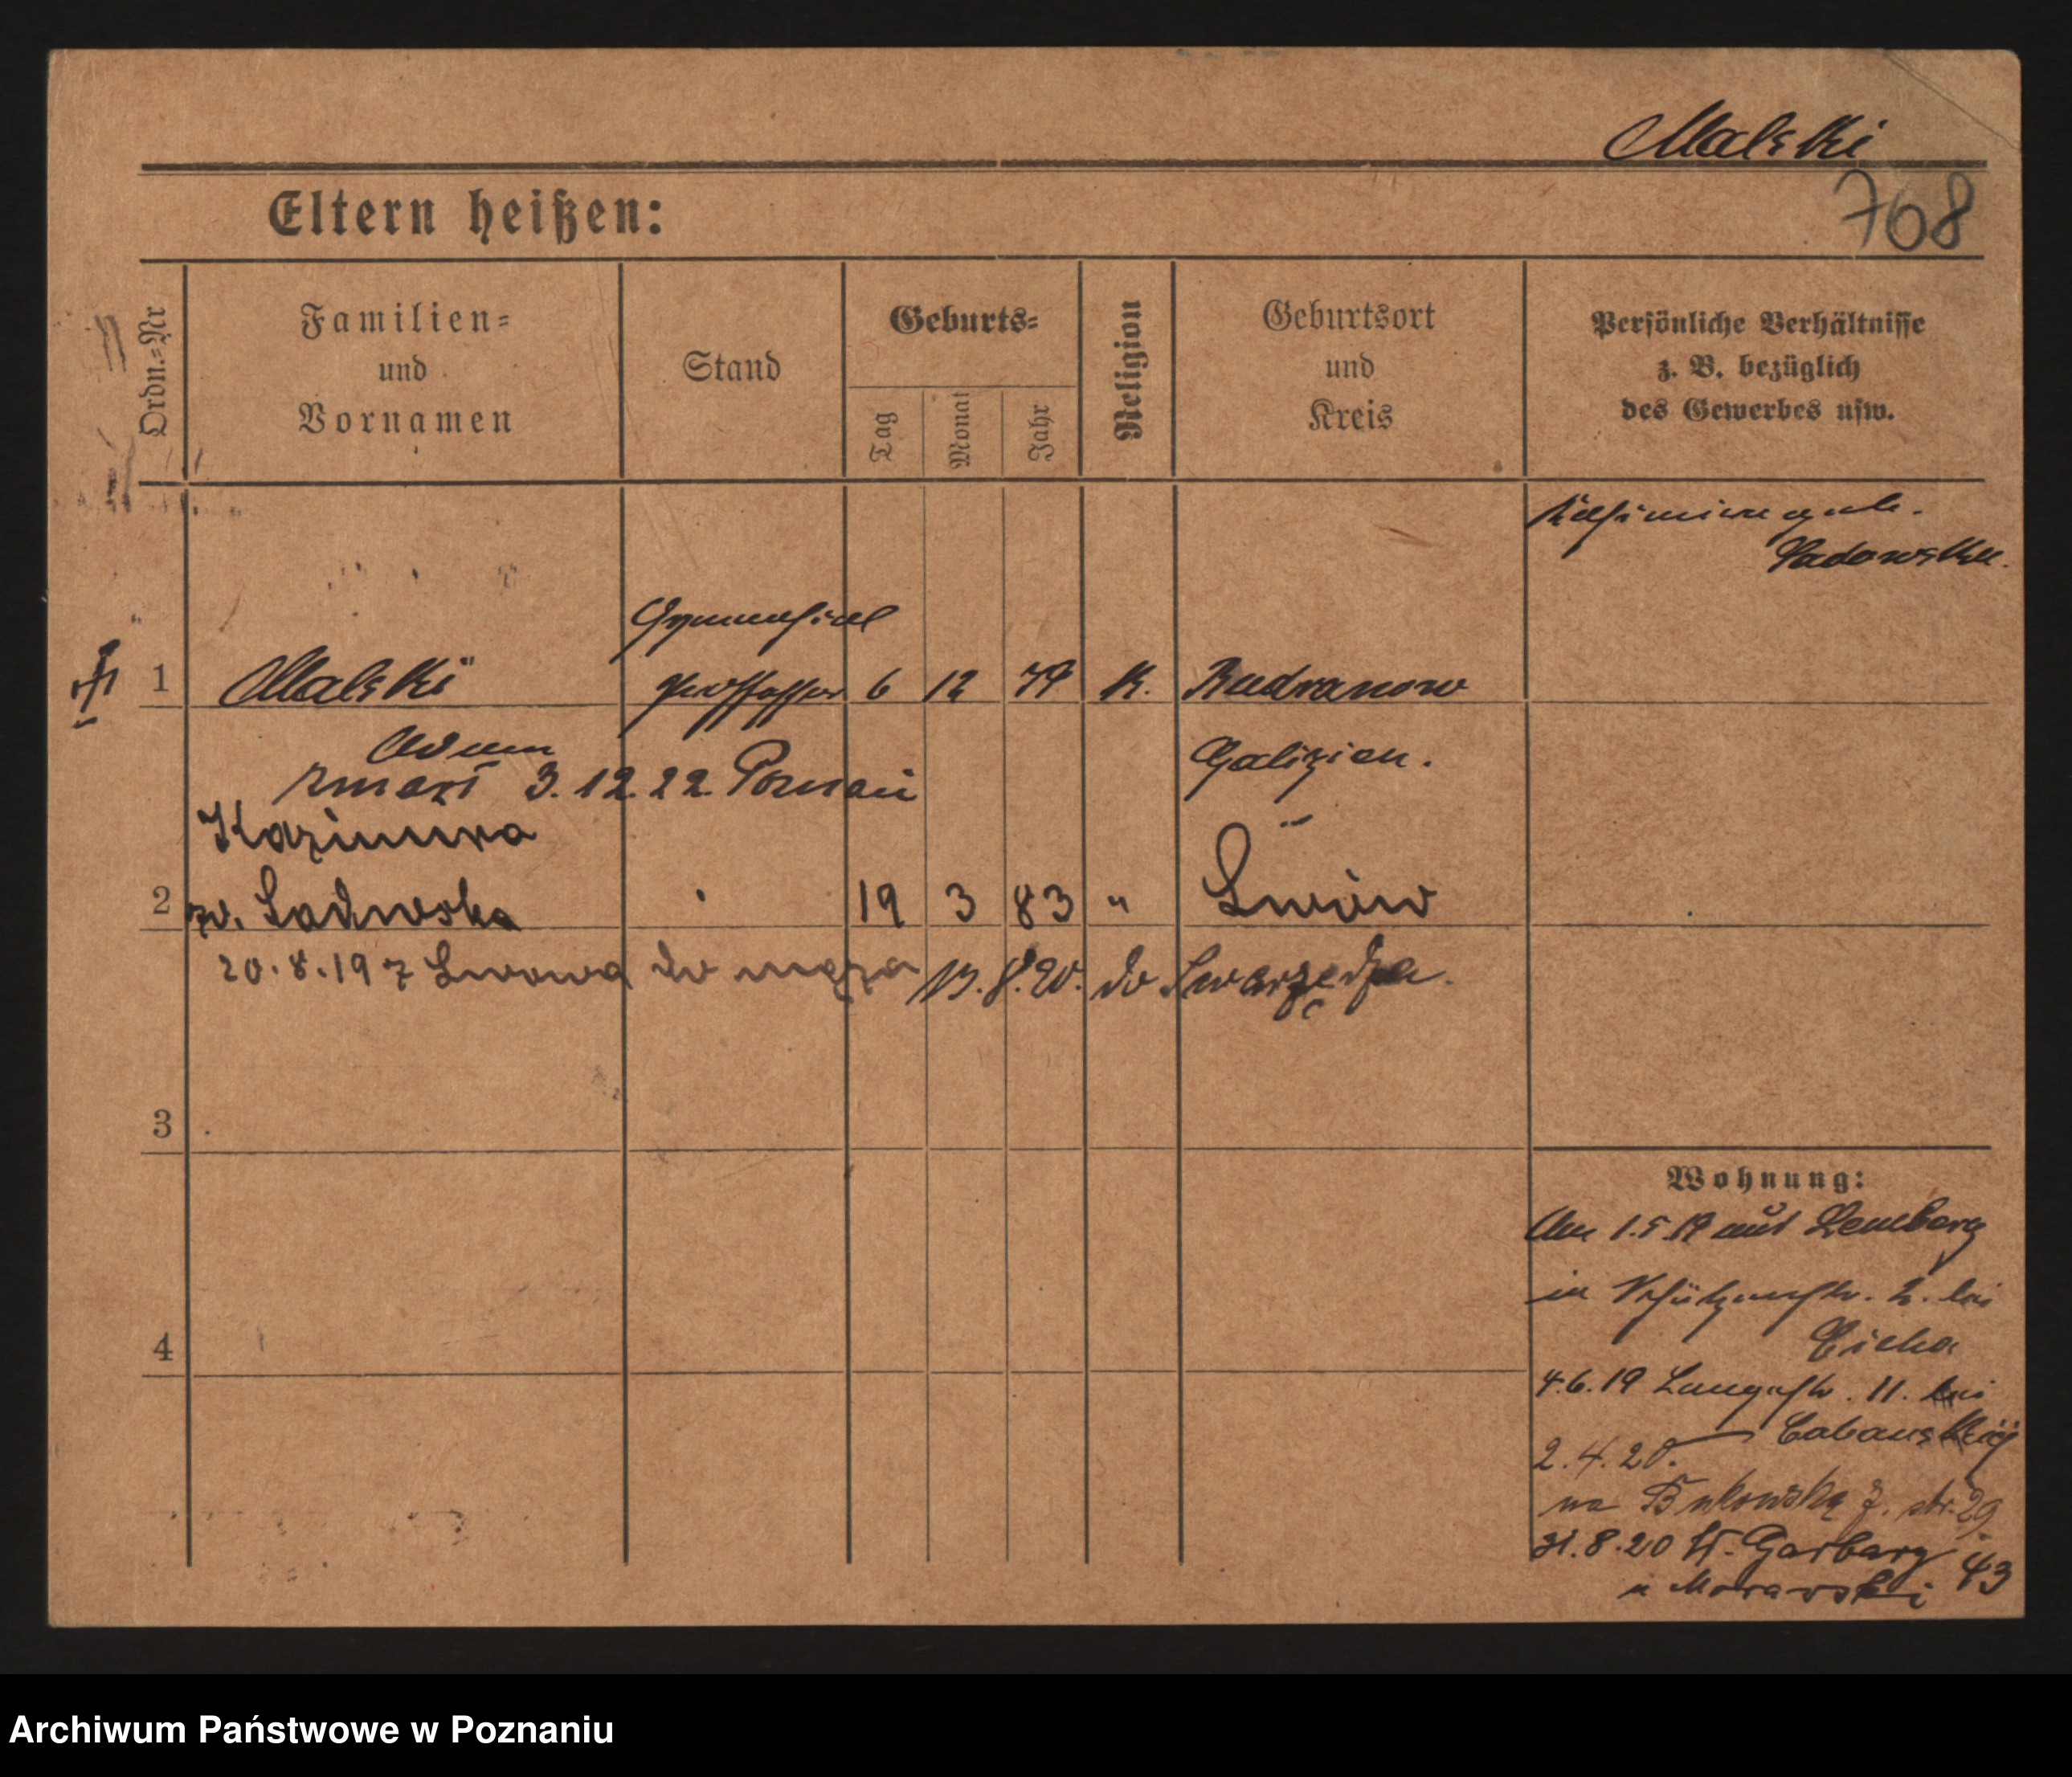 Malski
768
Eltern heißen:
Ordn.=Nr
Familien=
und
Vornamen
Stand
Geburts=
Tag
Monat
Jahr
Religion
Geburtsort
und
Kreis
Persönliche Verhältnisse
z. B. bezüglich
des Gewerbes usw.
geb.
Sadowska.
Gymnasial
1 Malski Professor 6 12 79 K. Rudranow
Adam Galizien.
zmarł 3.12.22. Poznań
Kazimiera
2 Sadowska 19 3 83 " Lwów
20.8.19 z Lwowa do męża 13.8.20. do Swarzędza.
3
4
Wohnung:
Am 1.5.19 aus Lemberg
in Schützenstr. 2. bei
Cicha
4.6.19 Langestr. 11. bei
2.4.20.
na Bukowską str. 29
31.8.20 W. Garbary 43
u Morawski
Archiwum Państwowe w Poznaniu